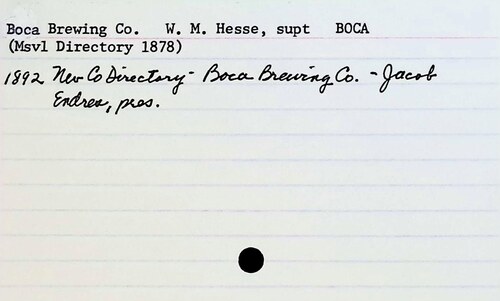 Boca Brewing Co. W. M. Hesse, supt BOCA
(Msvl Directory 1878)
1892 Nev Co Directory - Boca Brewing Co. - Jacob
Endres, pres.